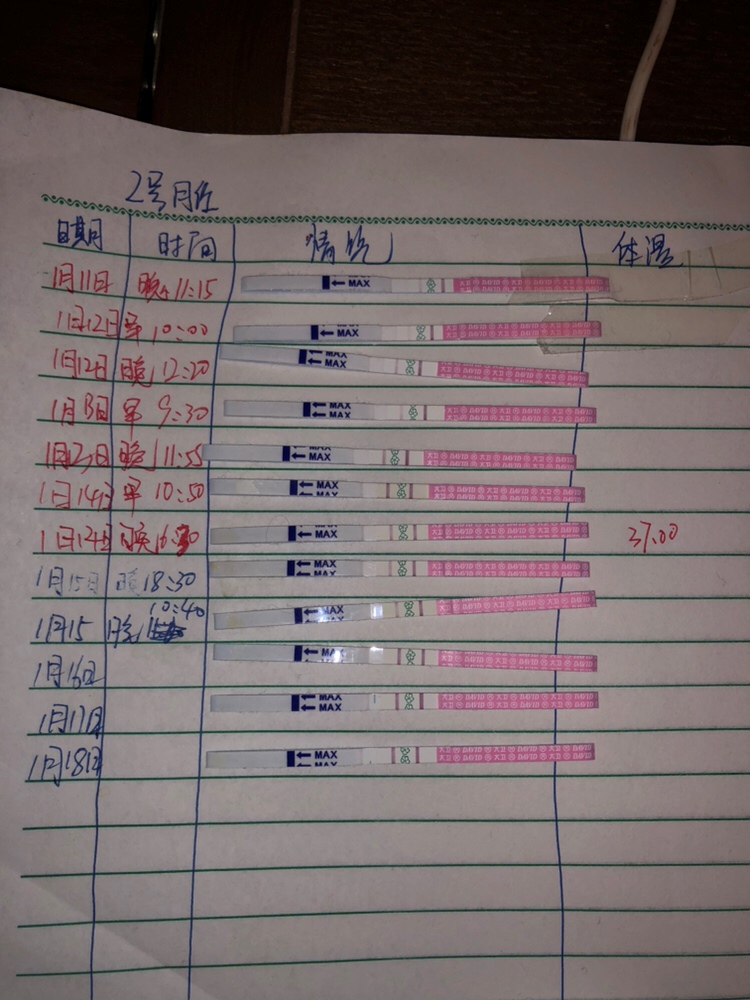 2号月经
日期 时间 情况 体温
1月11日 晚 11:15 MAX
1月12日 早 10:00 MAX
1月12日 晚 12:20 MAX MAX
1月13日 早 9:30 MAX MAX
1月23日 晚 11:55 MAX MAX
1月14日 早 10:50 MAX MAX
1月14日 晚 MAX MAX 37.00
1月15日 晚 18:30 MAX MAX
1月15 晚 10:40 MAX MAX
1月16日 MAX MAX
1月17日 MAX MAX
1月18日 MAX MAX